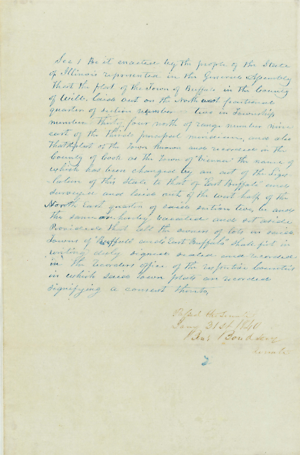 Sec 1 Be it enacted by the people of the State
of Illinois represented in the General Assembly
That the plat of the Town of Buffalo in the County
of Will laid out on the North west fractional
quarter of section number in Township
number Thirty four north of range number nine
east of the third principal meridian, and also
That plat of the Town known and recorded in the
County of Cook as the Town of the name of
which has been changed by an act of the Legis
lature of this State to that of East Buffalo and
surveyed and laid out of the west half of the
North East quarter of said section be and
the same are hereby vacated and set aside
Provided that all the owners of lots in said
Towns of Buffalo and East Buffalo shall first in
writing duly signed sealed and recorded
in the recorders office of the respective counties
in which said town plats are recorded
signifying a consent thereto
Passed
Jany 31st 1840